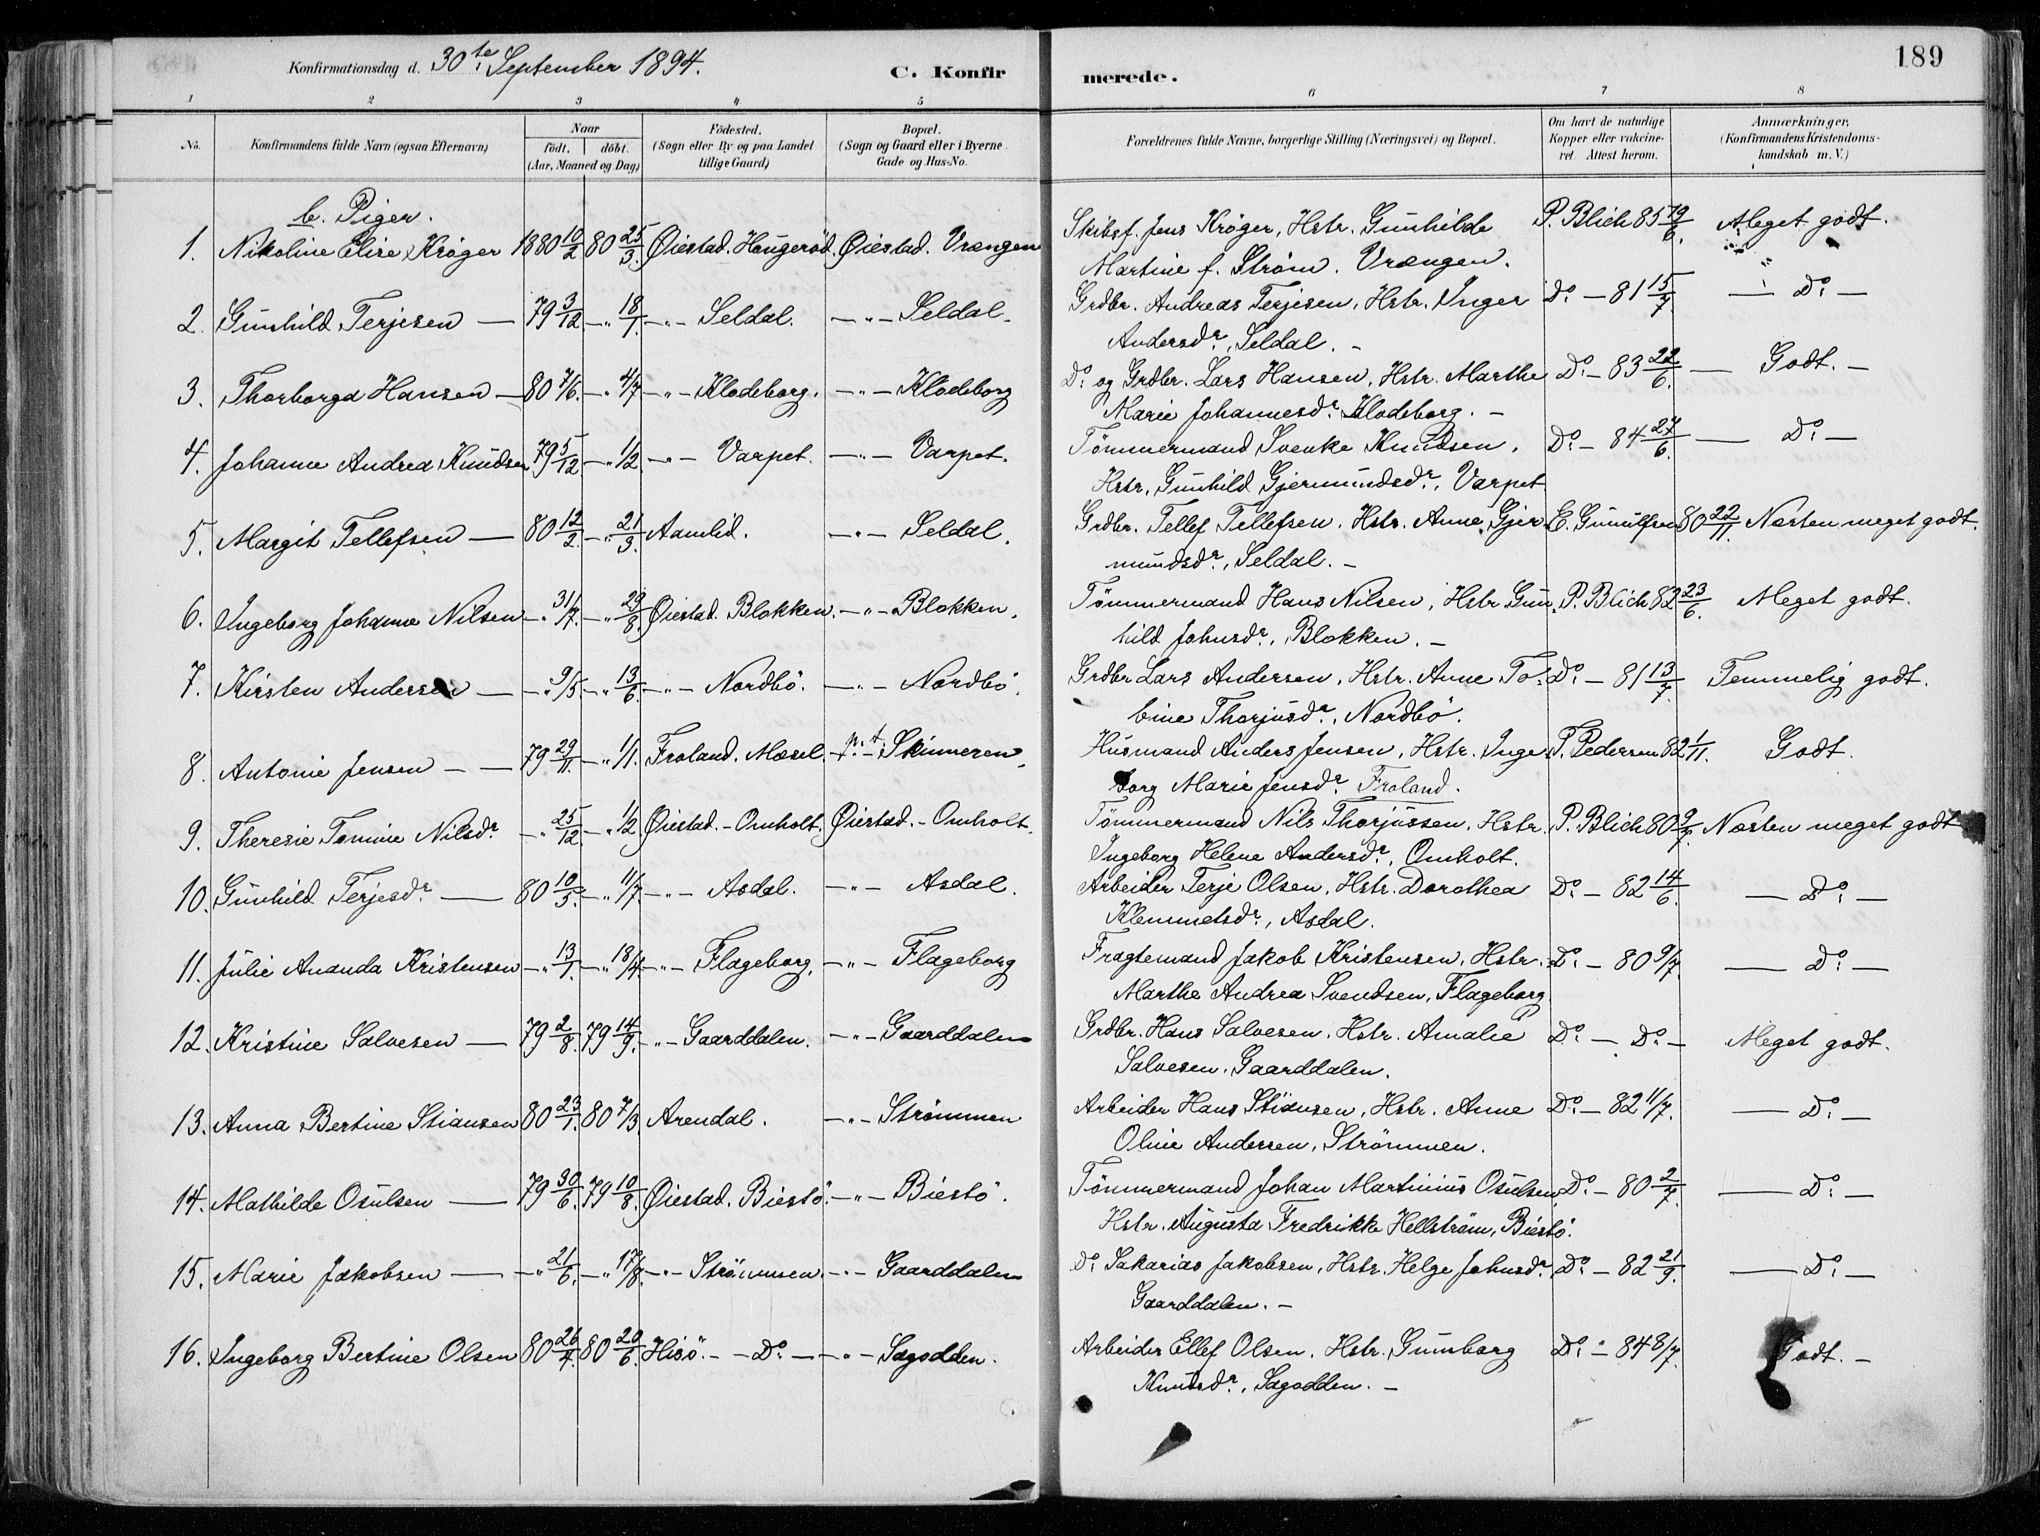 189
Konfirmationsdag d. 30te September 1894.
C. Konfirmerede.
1 2 3 4 5 6 7 8
No.
Konfirmandens fulde Navn (ogsaa Efternavn)
Naar
födt. döbt.
(Aar, Maaned og Dag)
Födested.
(Sogn eller By og paa Landet
tillige Gaard)
Bopæl.
(Sogn og Gaard eller i Byerne
Gade og Hus-No.
Forældrenes fulde Navne, borgerlige Stilling (Næringsvei) og Bopæl.
Om havt de naturlige
Kopper eller vakcine-
ret. Attest herom.
Anmærkninger.
(Konfirmandens Kristendoms-
kundskab m. V.)
b. Piger.
1. Nikoline Elise Krøger 1880 10/2 80 25/3. Øiestad. Haugerød. Øiestad. Vrængen Skibsf. Jens Krøger, Hstr. Gunhilde P. Blich 85 19/6. Meget godt.
Martine f. Strøm. Vrængen.
2. Gunhild Terjesen — 79 3/12 —„ 18/1. —„— Seldal. —„— Seldal. Grdbr. Andreas Terjesen, Hstr. Inger Do. — 81 15/7. — Do. —
Andersdr., Seldal. —
3. Thorborga Hansen — 80 7/6. —„ 4/7 —„— Klodeborg. —„— Klodeborg Do. og Grdbr. Lars Hansen, Hstr. Marthe Do. — 83 22/6. — Godt. —
Marie Johannesdr. Klodeborg. —
4. Johanne Andrea Knudsen 79 5/12 —„ 1/2 —„— Varpet. —„— Varpet. Tömmermand Svenke Knudsen, Do. — 84 27/6. — Do. —
Hstr. Gunhild Gjermundsdr., Varpet
5. Margit Tellefsen — 80 12/2. —„ 21/3. Aamlid. —„— Seldal. Grdbr. Tellef Tellefsen, Hstr. Anne Gjer- E. Gunulfsen 80 22/11. Næsten meget godt.
mundsdr., Seldal. —
6. Ingeborg Johanne Nilsen —„ 31/7. —„ 29/8. Øiestad. Blokken. —„— Blokken. Tömmermand Hans Nilsen, Hstr. Gun- P. Blich 82 23/6. Meget godt.
hild Johnsdr., Blokken. —
7. Kirsten Andersen — —„ 9/5 —„ 13/6. —„— Nordbö. —„— Nordbö. Grdbr Lars Andersen, Hstr. Anne To- Do. — 81 13/7. Temmelig godt.
bine Thorjusdr., Nordbö.
8. Antonie Jensen — — 79 29/11. —„ 1/1. Froland. Mæsel. p. t. Skinneren. Husmand Anders Jensen, Hstr. Inge- T. Pedersen 82 1/11. Godt.
borg Marie Jensdr. Froland.
9. Theresie Tomine Nilsdr. —„ 25/12. —„ 1/2 Øiestad. - Omholt. Øiestad. - Omholt. Tömmermand Nils Thorjussen, Hstr. P. Blich 80 9/7. Næsten meget godt
Ingeborg Helene Andersdr., Omholt.
10. Gunhild Terjesdr. — 80 10/5. —„ 11/7. —„— Asdal. —„— Asdal. Arbeider Terje Olsen, Hstr. Dorothea Do. — 82 14/6. — Do. —
Klemmetsdr., Asdal.
11. Julie Ananda Kristensen —„ 13/1. —„ 18/4 —„— Flageborg. —„— Flageborg Fragtemand Jakob Kristensen, Hstr. Do. — 80 9/7. — Do. —
Marthe Andrea Svendsen, Flageborg.
12. Kristine Salvesen — 79 2/8. 79 14/9. —„— Gaarddalen. —„— Gaarddalen Grdbr. Hans Salvesen, Hstr. Amalie Do. — Do. — Meget godt.
Salvesen. Gaarddalen.
13. Anna Bertine Stiansen 80 23/1. 80 7/3. Arendal. —„— Strömmen Arbeider Hans Stiansen, Hstr. Anne Do. — 82 11/7. — Do. —
Oline Andersen, Strömmen.
14. Mathilde Osulsen — 79 30/6. 79 10/8. Øiestad. Biestö. —„— Biestö. Tömmermand Johan Martinius Osulsen, Do. — 80 2/7. — Do. —
Hstr. Augusta Fredrikke Hellström, Biestö.
15. Marie Jakobsen — —„ 21/6. —„ 17/8. —„— Strömmen. —„— Gaarddalen Do. Sakarias Jakobsen, Hstr. Helge Johnsdr. Do. — 82 21/9. — Do. —
Gaarddalen. —
16. Ingeborg Bertine Olsen 80 26/4. 80 20/6. Hisö. — Do. — —„— Sagodden. Arbeider Ellef Olsen, Hstr. Gumborg Do. — 84 8/7. Godt. —
Knudsdr., Sagodden. —